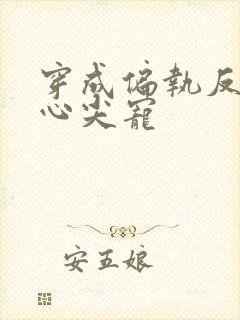 穿成偏執反
心尖寵
安五娘